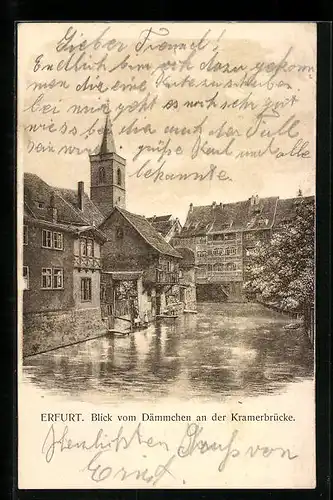 Lieber Freund!
Endlich bin ich dazu gekommen
men dir eine Karte zu schreiben
bei mir geht es noch sehr gut
wie es bei dir auch der Fall
sein wird grüße Karl und alle
bekannte.
ERFURT. Blick vom Dämmchen an der Kramerbrücke.
Herzlichten Gruß von
Ernst